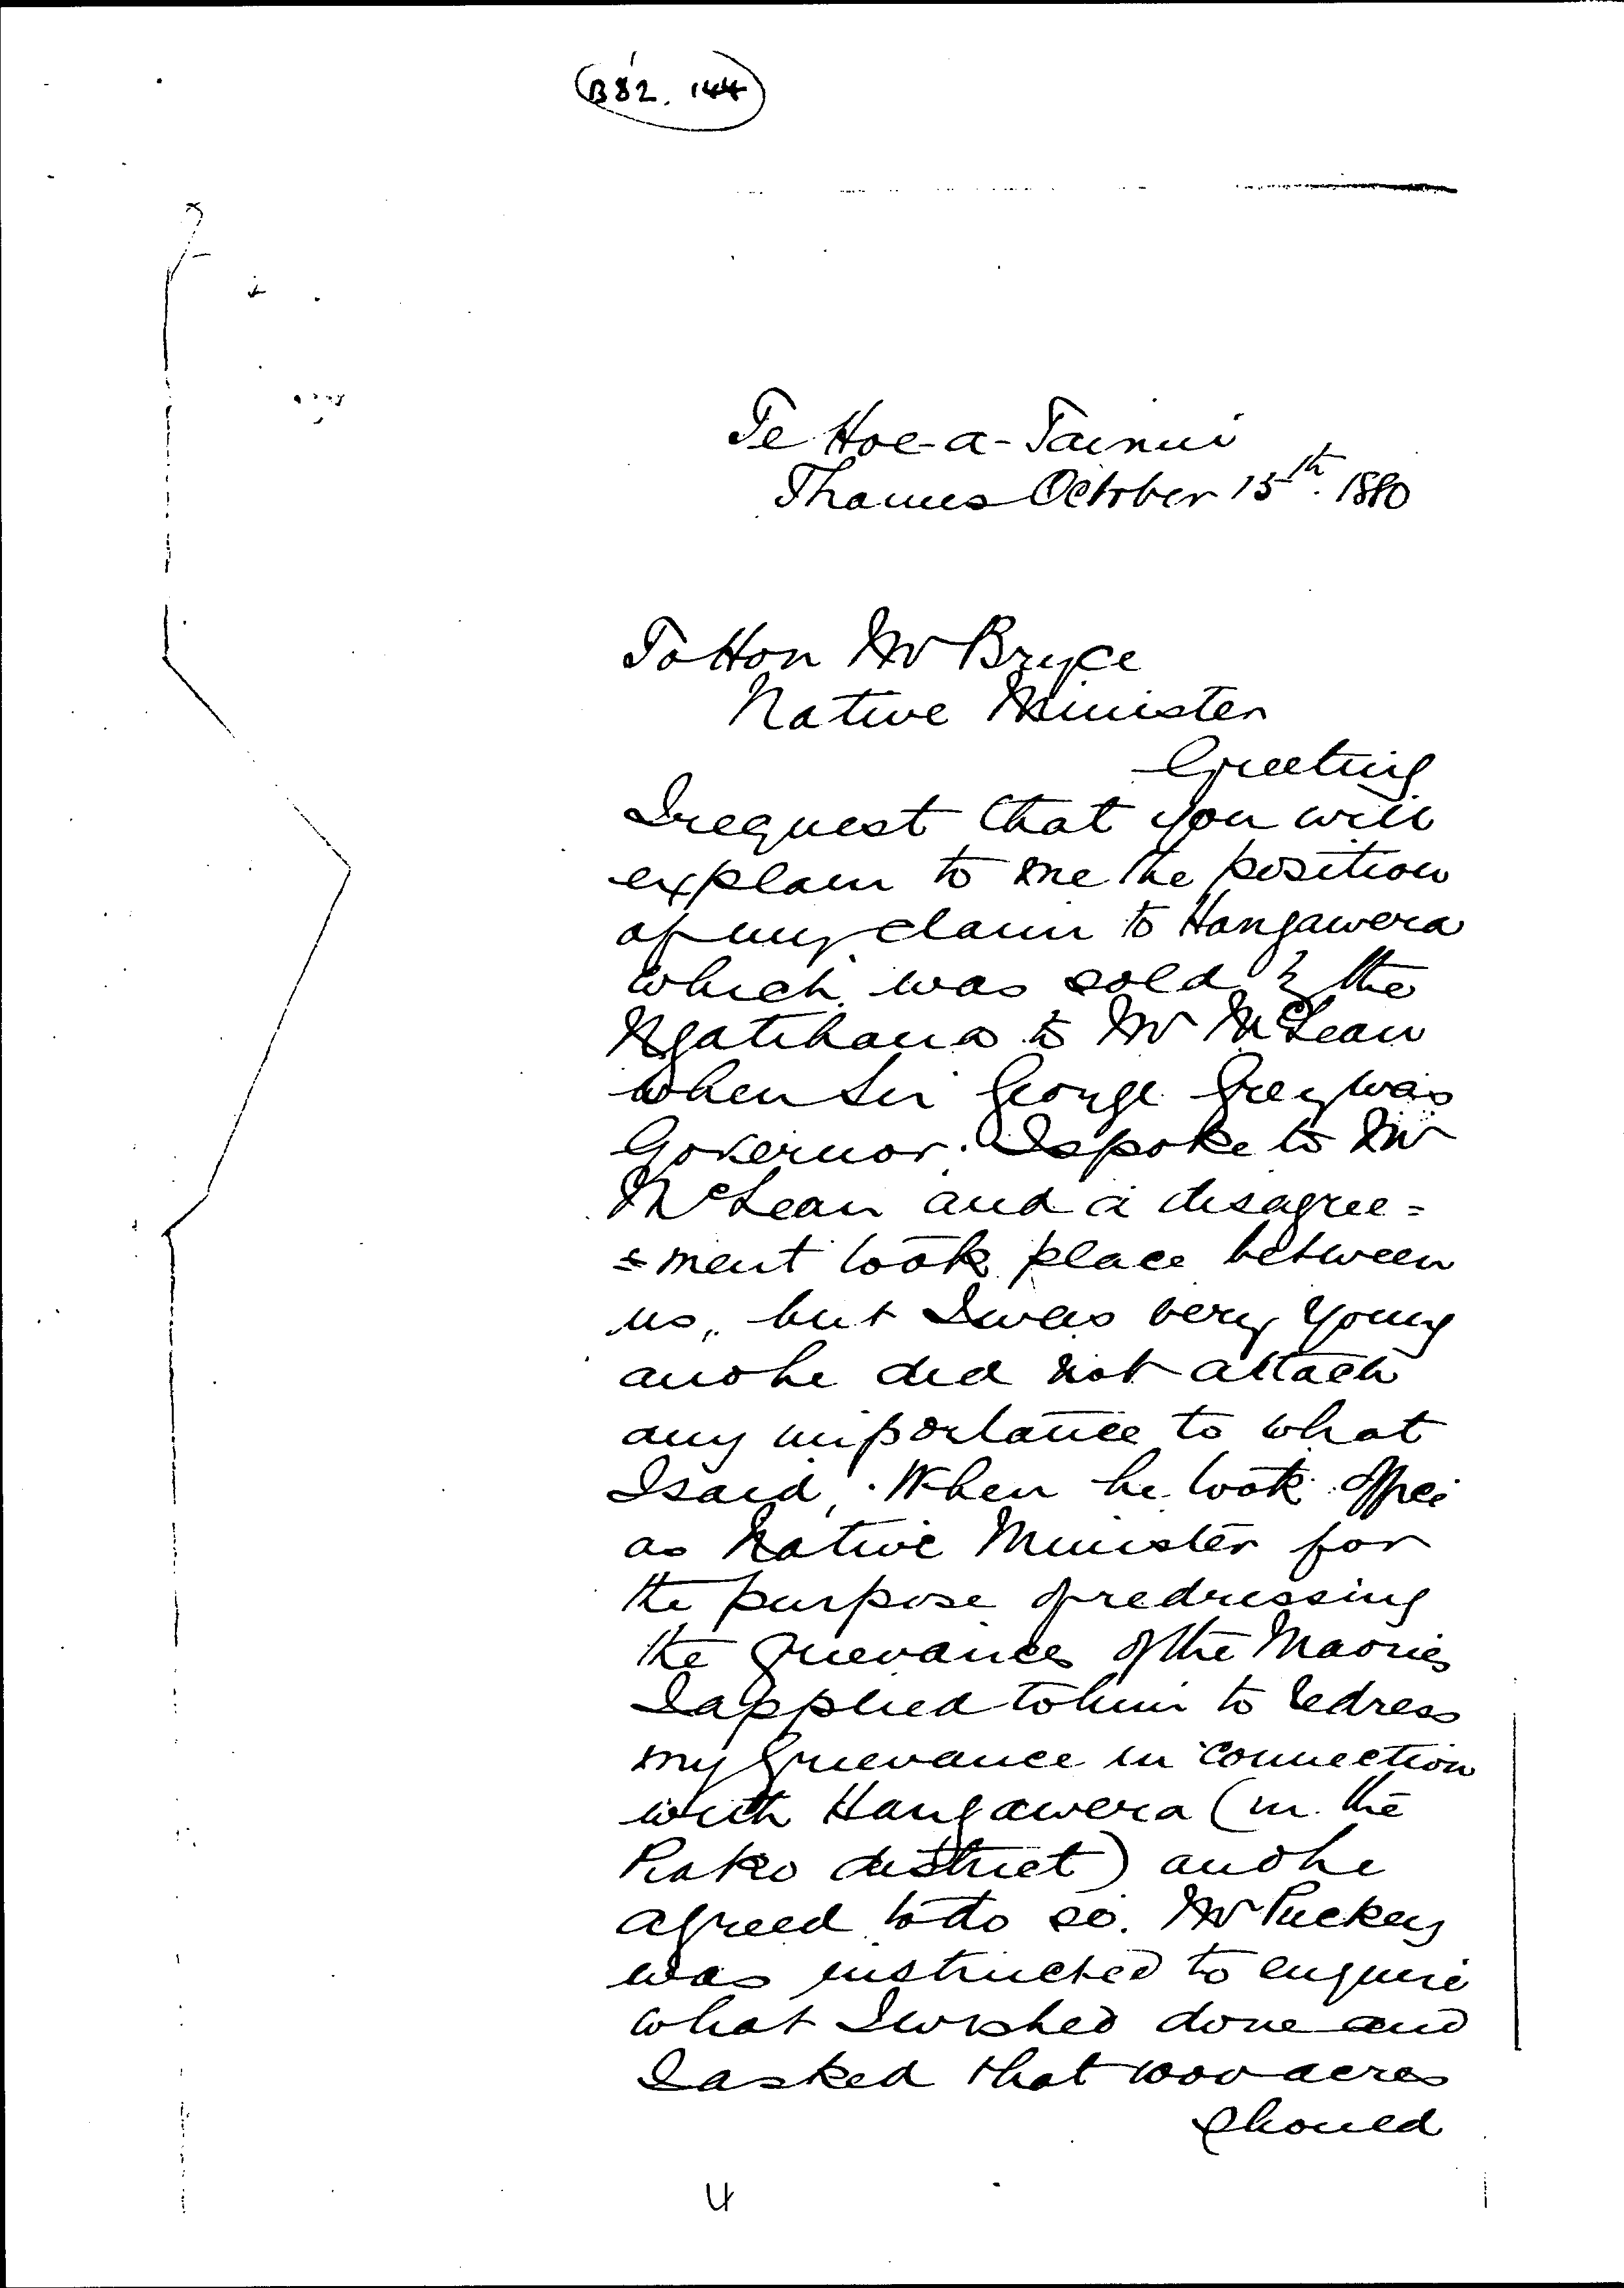 B82. 144
Te Hoe-a-Tainui
Thames October 15th. 1880
To Hon Mr Bryce
Native Minister
Greeting
I request that you will
explain to me the position
of my claim to Hangawera
which was sold by the
Ngatihaua to Mr McLean
when Sir George Grey was
Governor. I spoke to Mr
McLean and a disagree=
=ment took place between
us, but I was very young
and he did not attach
any importance to what
I said. When he took office
as Native Minister for
the purpose of redressing
the grievances of the Maories
I applied to him to redress
my grievance in connection
with Hangawera (in the
Piako district) and he
agreed to do so. Mr Puckey
was instructed to enquire
what I wished done and
I asked that 1000 acres
should
4